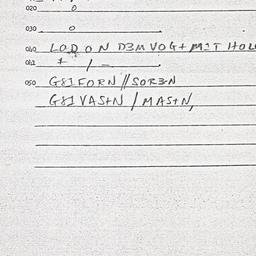 020 0
030 0
040 LODON D3M VOG+ M3T HOL
041 + / -
050 G81FORN // SOR3N
G81 VAS+N / MAS+N,